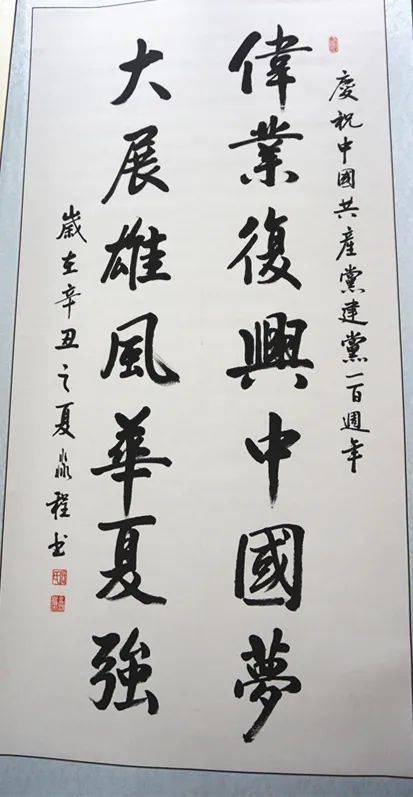 慶祝中國共產黨建黨一百週年
偉業復興中國夢
大展雄風華夏強
歲在辛丑之夏 程书